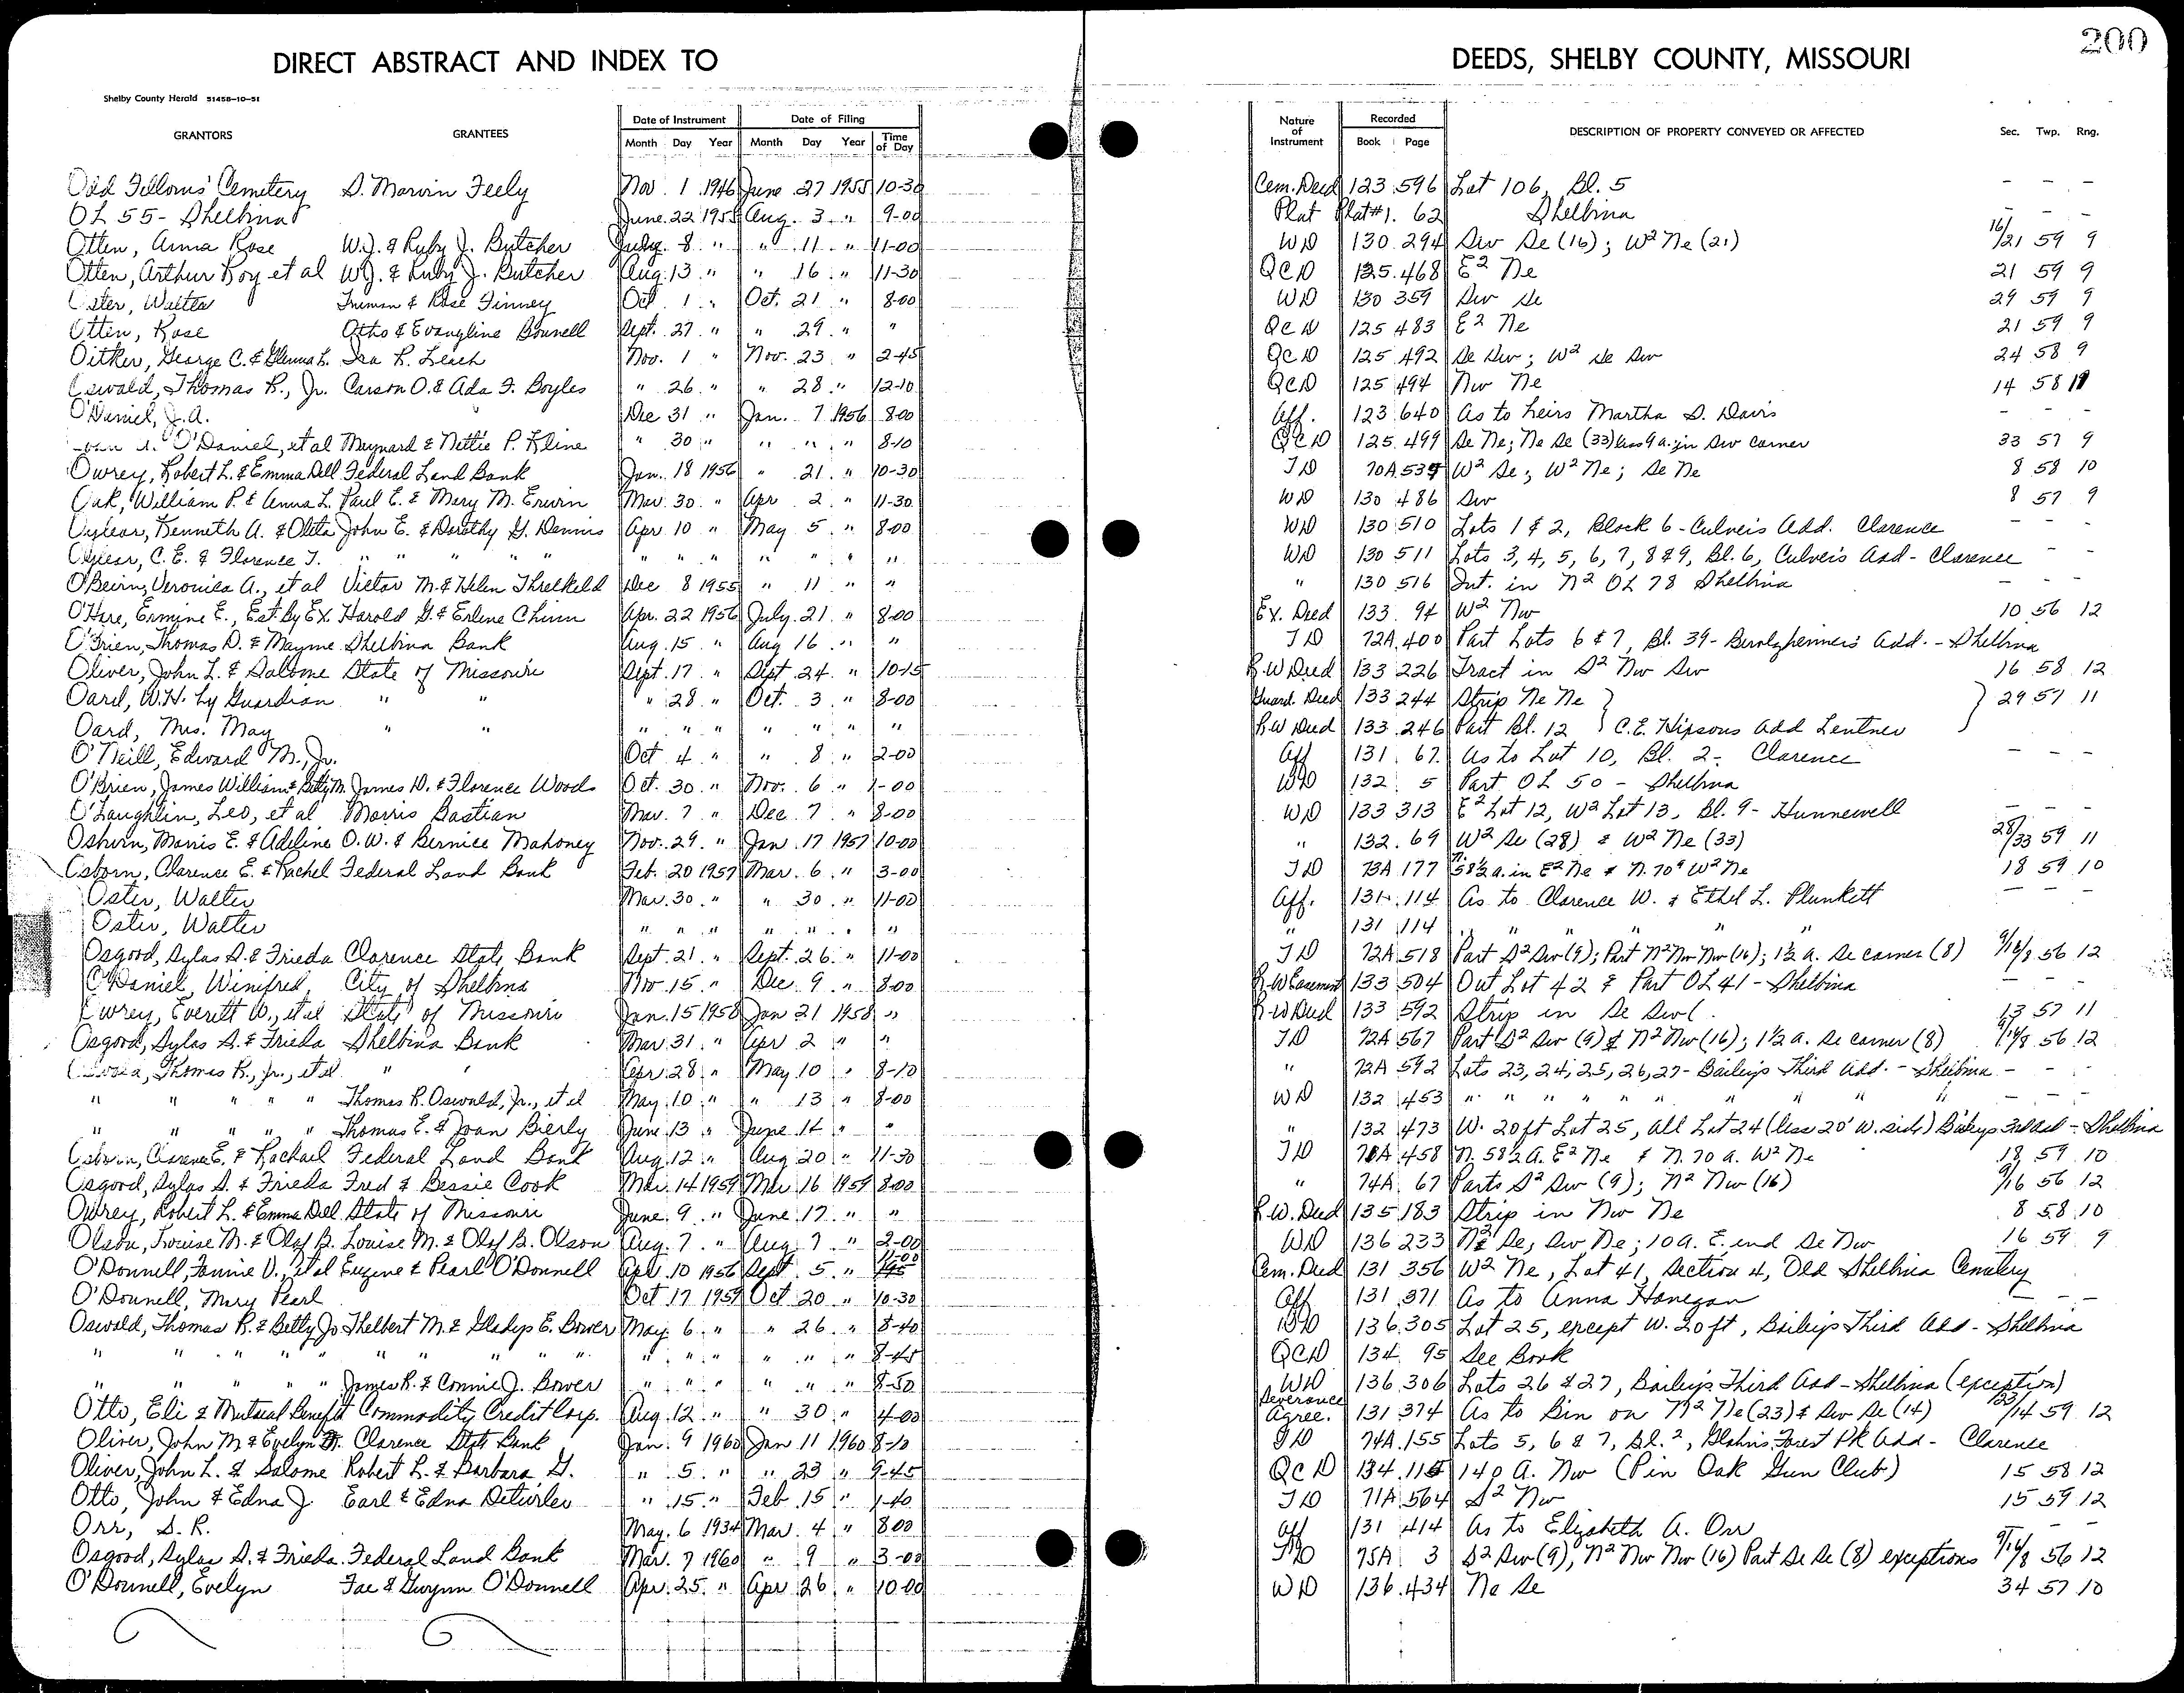 200
DIRECT ABSTRACT AND INDEX TO DEEDS, SHELBY COUNTY, MISSOURI
Shelby County Herald 51458-10-51
GRANTORS GRANTEES Date of Instrument Month Day Year Date of Filing Month Day Year Time of Day Nature of Instrument Recorded Book Page DESCRIPTION OF PROPERTY CONVEYED OR AFFECTED Sec. Twp. Rng.
Odd Fellows' Cemetery S. Marvin Feely Nov. 1 1946 June 27 1955 10-30 Cem. Deed 123 596 Lot 106, Bl. 5 - - -
OL 55- Shelbina June 22 1955 Aug. 3 " 9-00 Plat Plat#1. 62 Shelbina - - -
Otten, Anna Rose W.J. & Ruby J. Butcher July 8 " " 11 " 11-00 WD 130 294 Sw Se (16); W2 Ne (21) 16/21 59 9
Otten, Arthur Roy et al W.J. & Ruby J. Butcher Aug. 13 " " 16 " 11-30 QCD 125 468 E2 Ne 21 59 9
Oster, Walter Truman & Rose Finney Oct. 1 " Oct. 21 " 8-00 WD 130 359 Sw Se 29 59 9
Otten, Rose Otho & Evangline Bunnell Sept. 27 " " 29 " " QCD 125 483 E2 Ne 21 59 9
Oitker, George C. & Glenna L. Ira R. Leach Nov. 1 " Nov. 23 " 2-45 QCD 125 492 Se Sw; W2 Se Sw 24 58 9
Oswald, Thomas R., Jr. Carson O. & Ada F. Boyles " 26 " " 28 " 12-10 QCD 125 494 Nw Ne 14 58
O'Daniel, J.A. Dec 31 " Jan. 7 1956 8-00 Aff. 123 640 As to heirs Martha S. Davis - - -
O'Daniel, et al Maynard & Nettie P. Kline " 30 " " " " 8-10 QCD 125 499 Se Ne; Ne Se (33) less 9 a. in Sw corner 33 57 9
Owrey, Robert L. & Emma Dell Federal Land Bank Jan. 18 1956 " 21 " 10-30 TD 70A W2 Se; W2 Ne; Se Ne 8 58 10
Oak, William P. & Anna L. Paul E. & Mary M. Erwin Mar. 30 " Apr. 2 " 11-30 WD 130 486 Sw 8 57 9
Kenneth A. & Oleta John E. & Dorothy G. Dennis Apr 10 " May 5 " 8-00 WD 130 510 Lots 1 & 2, Block 6 - Culver's Add. Clarence - - -
C. E. & Florence T. " " " " " " " " " " " WD 130 511 Lots 3, 4, 5, 6, 7, 8 & 9, Bl. 6, Culver's Add - Clarence - -
O'Beirn, Veronica A., et al Victor M. & Helen Threlkeld Dec 8 1955 " 11 " " " 130 516 Int. in N2 OL 78 Shelbina - - -
O'Hare, Ermine E., Est. By Ex. Harold G. & Erlene Chinn Apr. 22 1956 July 21 " 8-00 Ex. Deed 133 94 W2 Nw 10 56 12
O'Brien, Thomas D. & Mayme Shelbina Bank Aug. 15 " Aug 16 " " TD 72A 400 Part Lots 6 & 7, Bl. 39 - Add. - Shelbina
Oliver, John L. & Salome State of Missouri Sept. 17 " Sept 24 " 10-15 R.W Deed 133 226 Tract in S2 Nw Sw 16 58 12
Oard, W.H. by Guardian " " " 28 " Oct. 3 " 8-00 Guard. Deed 133 244 Strip Ne Ne } 29 57 11
Oard, Mrs. May " " " " " " " " " R.W Deed 133 246 Part Bl. 12 } C.E. Hipsons Add Lentner
O'Neill, Edward M., Jr. Oct 4 " " 8 " 2-00 Aff 131 67 As to Lot 10, Bl. 2 - Clarence - - -
O'Brien, James William & Betty M. James D. & Florence Woods Oct. 30 " Nov. 6 " 1-00 WD 132 5 Part OL 50 - Shelbina
O'Laughlin, Leo, et al Morris Bastian Mar. 7 " Dec 7 " 8-00 WD 133 313 E2 Lot 12, W2 Lot 13, Bl. 9 - Hunnewell - - -
Osburn, Morris E. & Adeline O.W. & Bernice Mahoney Nov. 29 " Jan 17 1957 10-00 " 132 69 W2 Se (28) & W2 Ne (33) 28/33 59 11
Osborn, Clarence E. & Rachel Federal Land Bank Feb. 20 1957 Mar. 6 " 3-00 TD 73A 177 N. 58½ a. in E2 Ne & N. 70a W2 Ne 18 59 10
Oster, Walter Mar. 30 " " 30 " 11-00 Aff. 131 114 As to Clarence W. & Ethel L. Plunkett - - -
Oster, Walter " " " " " " " " 131 114 " " " "
Osgood, Sylas S. & Frieda Clarence State Bank Sept. 21 " Sept. 26 " 11-00 TD 72A 518 Part S2 Sw (9); Part N2 Nw Nw (16); 1½ a. Se corner (8) 9/16/8 56 12
O'Daniel, Winifred City of Shelbina Nov 15 " Dec 9 " 8-00 R.W Easement 133 504 Out Lot 42 & Part OL 41 - Shelbina - -
Owrey, Everett W., et al State of Missouri Jan. 15 1958 Jan 21 1958 " R.W Deed 133 592 Strip in Se Sw 13 57 11
Osgood, Sylas S. & Frieda Shelbina Bank Mar 31 " Apr 2 " " TD 72A 567 Part S2 Sw (9) & N2 Nw (16); 1½ a. Se corner (8) 9/16/8 56 12
Thomas R., Jr., et al " " Apr 28 " May 10 " 8-10 " 72A 592 Lots 23, 24, 25, 26, 27 - Bailey's Third Add. - Shelbina - - -
" " " " " Thomas R. Oswald, Jr., et al May 10 " " 13 " 8-00 WD 132 453 " " " " " " " " " - - -
" " " " " Thomas E. & Joan Bierly June 13 " June 14 " " " 132 473 W. 20 ft Lot 25, all Lot 24 (less 20' W. side) Baileys 3rd Add - Shelbina
Osborn, Clarence E. & Rachael Federal Land Bank Aug. 12 " Aug 20 " 11-30 TD 458 N. 58½ A. E2 Ne & N. 70 a. W2 Ne 18 59 10
Osgood, Sylas S. & Frieda Fred & Bessie Cook Mar. 14 1959 Mar 16 1959 8-00 " 74A 67 Parts S2 Sw (9); N2 Nw (16) 9/16 56 12
Owrey, Robert L. & Emma Dell State of Missouri June 9 " June 17 " " R.W. Deed 135 183 Strip in Nw Ne 8 58 10
Olson, Louise M. & Olof B. Louise M. & Olof B. Olson Aug. 7 " Aug 7 " 2-00 WD 136 233 N2 Se; Sw Ne; 10 a. E. end Se Nw 16 59 9
O'Donnell, Fannie V., et al Eugene & Pearl O'Donnell Apr. 10 1956 Sept. 5 " 11-00 Cem. Deed 131 356 W2 Ne, Lot 41, Section 4, Old Shelbina Cemetery
O'Donnell, Mary Pearl Oct 17 1959 Oct 20 " 10-30 Aff 131 371 As to Anna Hanegan - -
Oswald, Thomas R. & Betty Jo Thelbert M. & Gladys E. Bower May 6 " " 26 " 8-40 WD 136 305 Lot 25, except W. 20 ft, Bailey's Third Add - Shelbina
" " " " " " " " " " " " " " " " 8-45 QCD 134 95 See Book
" " " " " James R. & Connie J. Bower " " " " " " 8-50 WD 136 306 Lots 26 & 27, Bailey's Third Add - Shelbina (exception)
Otto, Eli & Mutual Benefit Commodity Credit Corp. Aug. 12 " " 30 " 4-00 Severance Agree. 131 374 As to Bin on N2 Ne (23) & Sw Se (14) 23/14 59 12
Oliver, John M & Evelyn Clarence State Bank Jan. 9 1960 Jan 11 1960 8-10 TD 74A 155 Lots 5, 6 & 7, Bl. 2, Forest Pk Add - Clarence
Oliver, John L. & Salome Robert L. & Barbara G. " 5 " " 23 " 9-45 QCD 134 140 A. Nw (Pin Oak Gun Club) 15 58 12
Otto, John & Edna J. Earl & Edna " 15 " Feb 15 " 1-40 TD 71A 564 S2 Nw 15 59 12
Orr, S. R. May 6 1934 Mar. 4 " 8-00 Aff 131 414 As to Elizabeth A. Orr - -
Osgood, Sylas S. & Frieda Federal Land Bank Mar. 7 1960 " 9 " 3-00 TD 75A 3 S2 Sw (9), N2 Nw Nw (16) Part Se Se (8) exceptions 9/16/8 56 12
O'Donnell, Evelyn Fae & Gwynn O'Donnell Apr. 25 " Apr 26 " 10-00 WD 136 434 Ne Se 34 57 10